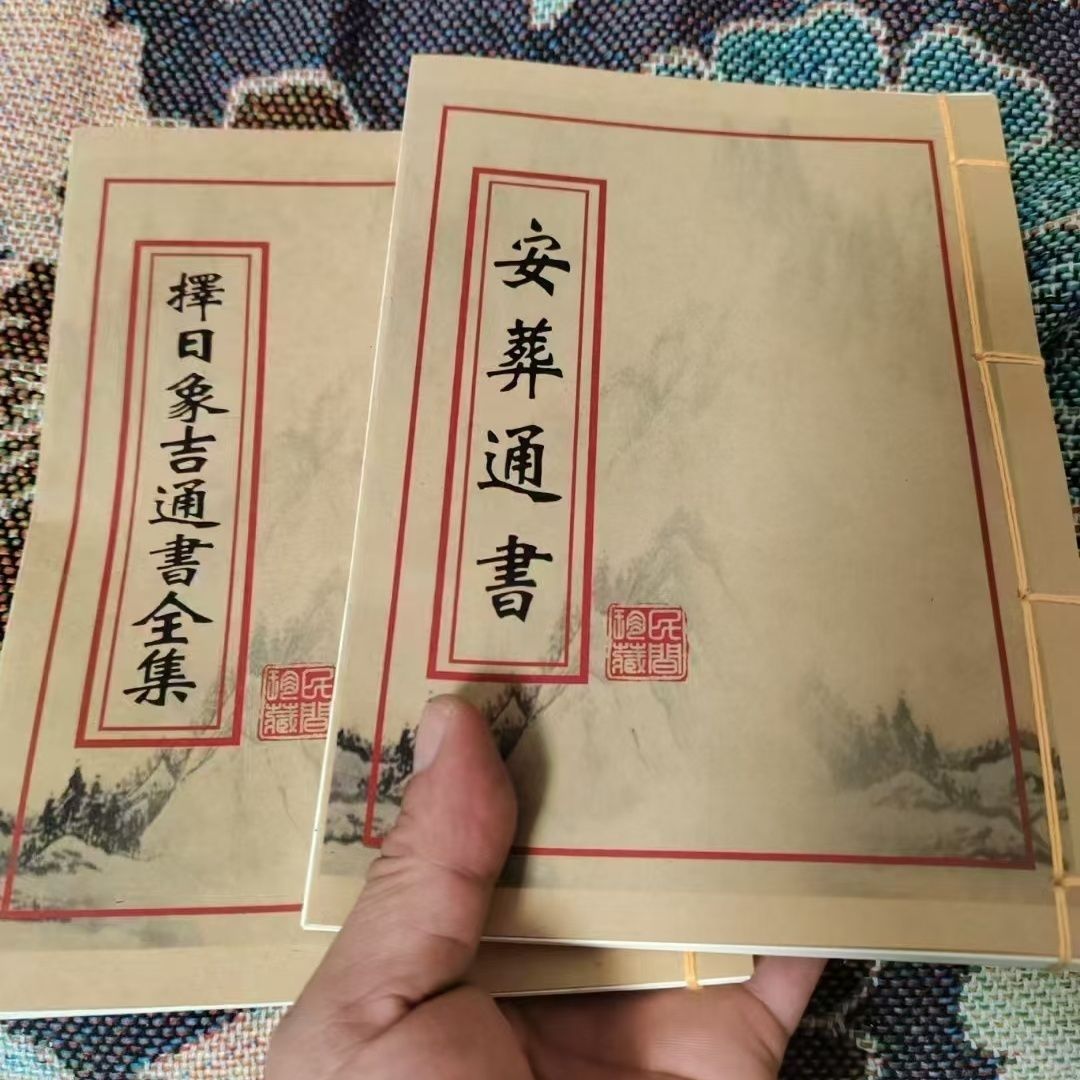 安葬通書
民間珍藏
擇日象吉通書全集
民間珍藏